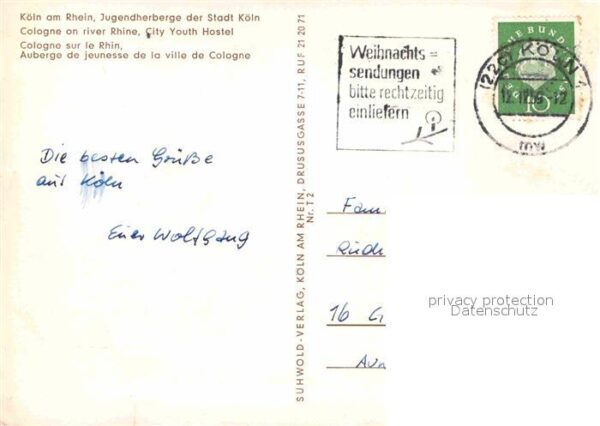 Köln am Rhein, Jugendherberge der Stadt Köln
Cologne on river Rhine, City Youth Hostel
Cologne sur le Rhin,
Auberge de jeunesse de la ville de Cologne
Die besten Grüße
aus Köln
Euer Wolfgang
SUHWOLD-VERLAG, KÖLN AM RHEIN, DRUSUSGASSE 7-11, RUF 21 20 71
Nr. T 2
Weihnachts=
sendungen
bitte rechtzeitig
einliefern
(22c) KÖLN 1
mw
10
Fam
16 G
privacy protection
Datenschutz